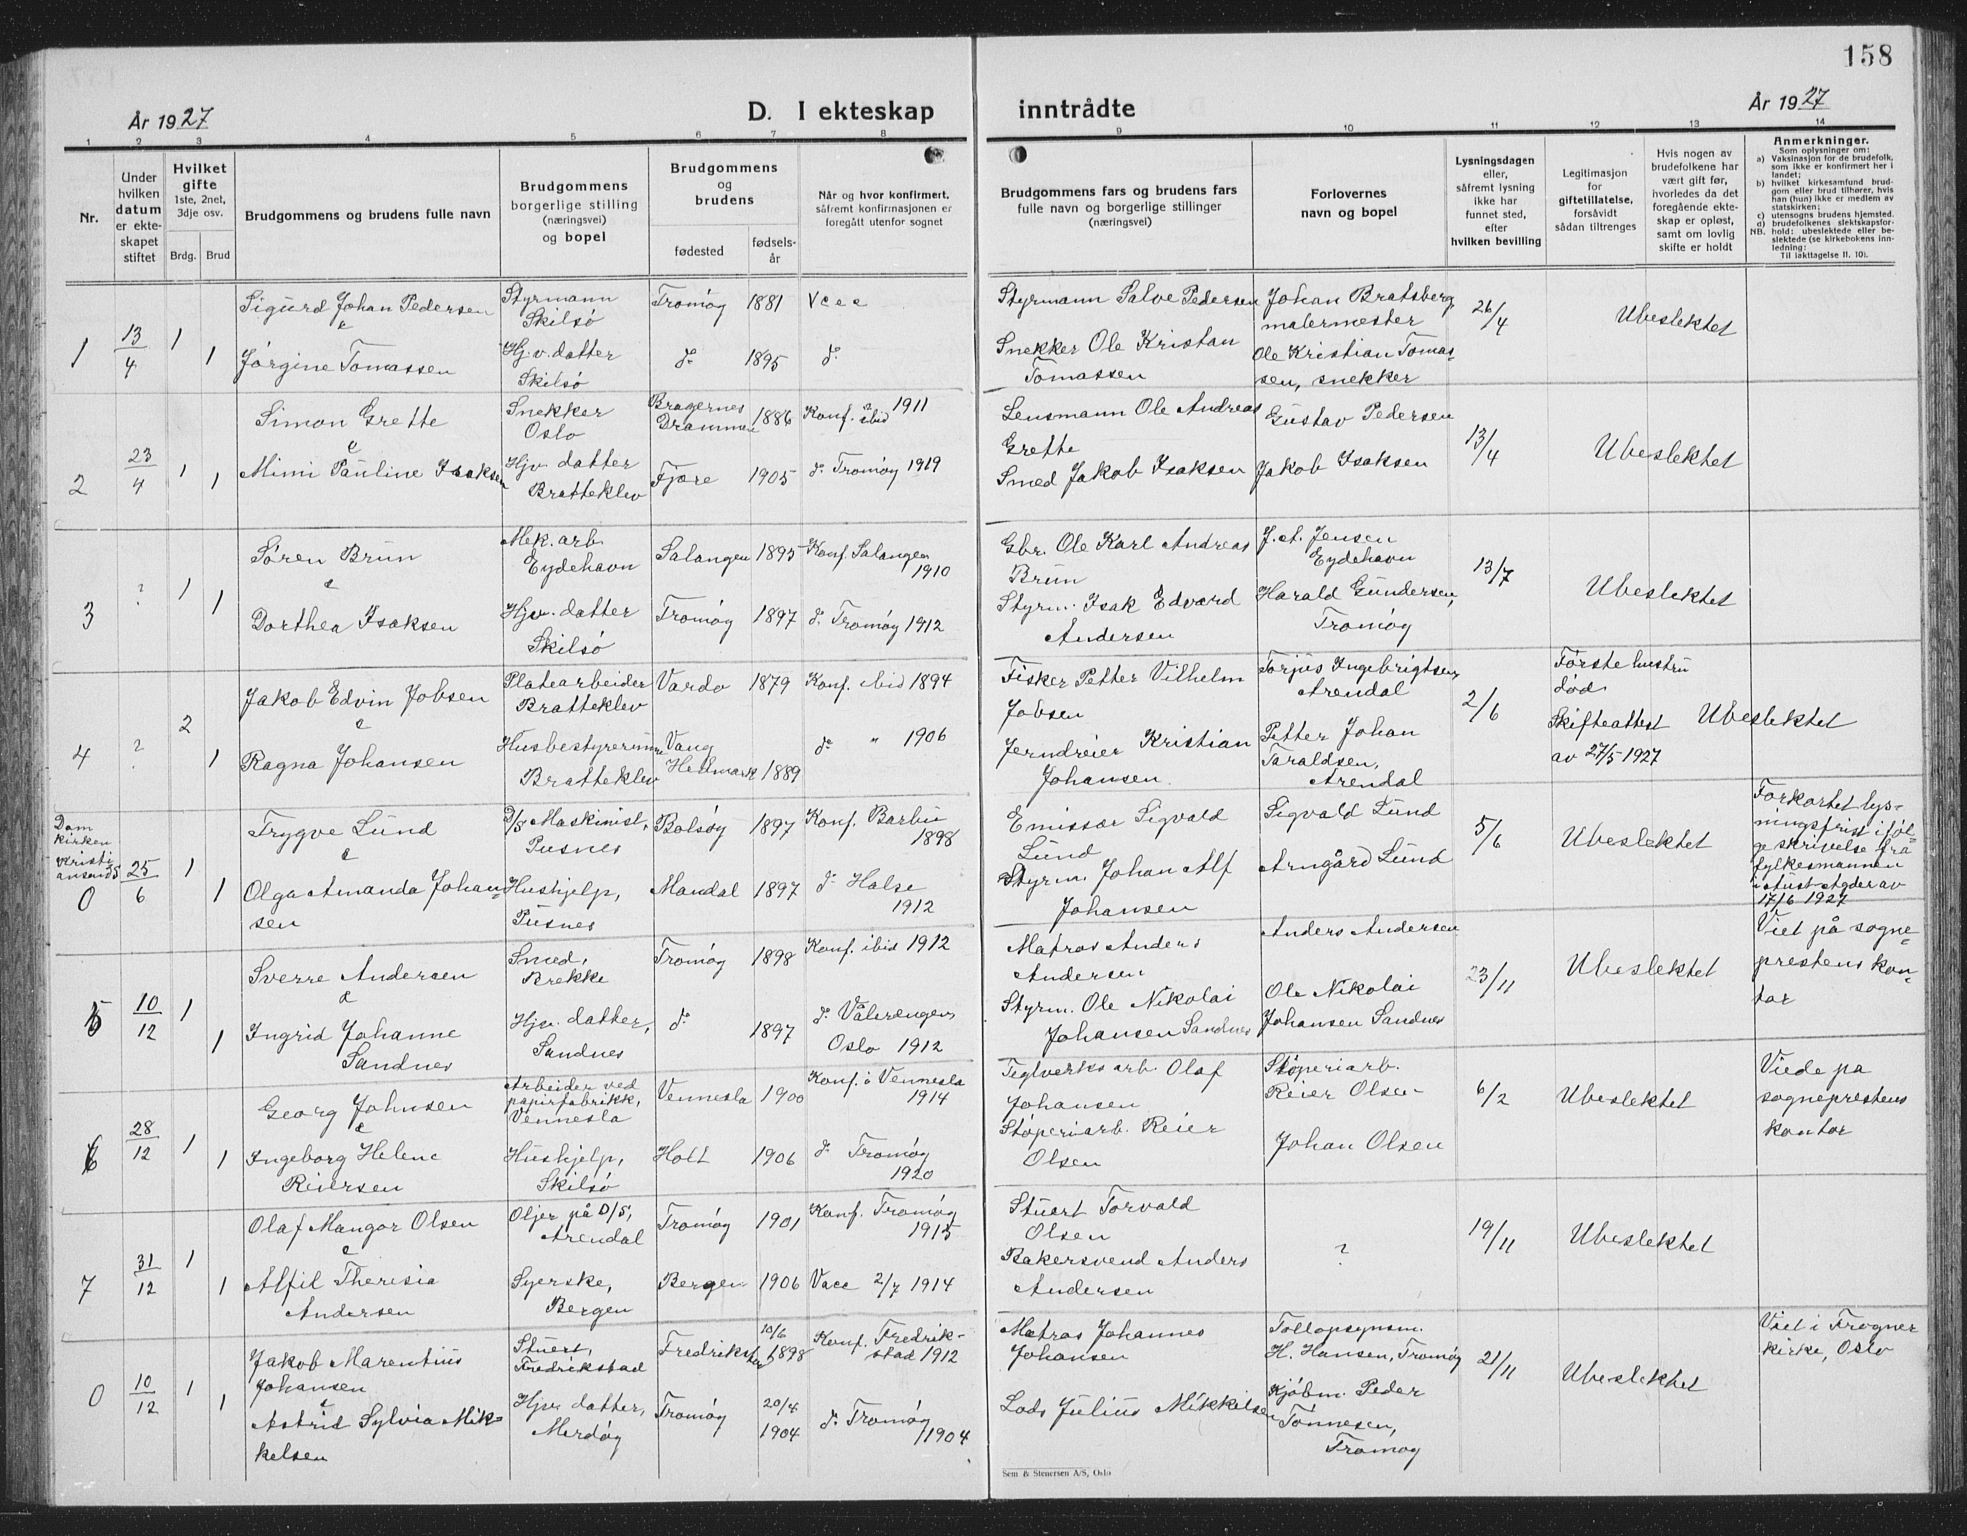 158
År 1927
D. I ekteskap inntrådte
År 1927
1 2 3 4 5 6 7 8 9 10 11 12 13 14
Nr.
Under hvilken datum er ekteskapet stiftet
Hvilket gifte 1ste, 2net, 3dje osv.
Brdg. Brud
Brudgommens og brudens fulle navn
Brudgommens borgerlige stilling (næringsvei) og bopel
Brudgommens og brudens
fødested
fødselsår
Når og hvor konfirmert, såfremt konfirmasjonen er foregått utenfor sognet
Brudgommens fars og brudens fars fulle navn og borgerlige stillinger (næringsvei)
Forlovernes navn og bopel
Lysningsdagen eller, såfremt lysning ikke har funnet sted, efter hvilken bevilling
Legitimasjon for giftetillatelse, forsåvidt sådan tiltrenges
Hvis nogen av brudefolkene har vært gift før, hvorledes da det foregående ekteskap er opløst, samt om lovlig skifte er holdt
Anmerkninger.
Som oplysninger om:
a) Vaksinasjon for de brudefolk, som ikke er konfirmert her i landet;
b) hvilket kirkesamfund brudgom eller brud tilhører, hvis han (hun) ikke er medlem av statskirken;
c) utensogns brudens hjemsted.
d) brudefolkenes slektskapsforhold: ubeslektede eller beslektede (se kirkebokens innledning:
NB.
Til iakttagelse II, 10).
1 13/4 1 Sigurd Johan Pedersen Styrmann Skilsø Tromøy 1881 Styrmann Salve Pedersen Johan Bratsberg malermester 26/4 Ubeslektet
&
1 Jørgine Tomassen Hj.v. datter Skilsø do 1895 do Snekker Ole Kristan Tomassen Ole Kristian Tomassen, snekker
2 23/4 1 Simon Grette Snekker Oslo Bragernes Drammen 1886 Konf. ibid 1911 Lensmann Ole Andreas Grette Gustav Pedersen 13/4 Ubeslektet
&
1 Mimi Pauline Isaksen Hjv. datter Bratteklev Fjære 1905 do Tromøy 1919 Smed Jakob Isaksen Jakob Isaksen
3 ? 1 Søren Brun Mek. arb. Eydehavn Salangen 1895 Konf. Salangen 1910 Gbr. Ole Karl Andreas Brun J. A. Jensen Eydehavn 13/7 Ubeslektet
&
1 Dorthea Isaksen Hjv. datter Skilsø Tromøy 1897 do Tromøy 1912 Styrm. Isak Edvard Andersen Harald Gundersen, Tromøy
4 ? 2 Jakob Edvin Jobsen Platearbeider Bratteklev Vardø 1879 Konf. ibid 1894 Fisker Petter Vilhelm Jobsen Torjus Ingebrigtsen Arendal 2/6 Første hustru død Skifteattest av 27/5 1927 Ubeslektet
&
1 Ragna Johansen Husbestyrerinne Bratteklev Vang Hedmark 1889 do " 1906 Jerndreier Kristian Johansen Petter Johan Taraldsen, Arendal
Domkirken Kristiansand S
0 25/6 1 Trygve Lund D/S Maskinist, Pusnes Bolsøy 1897 Konf. Barbu 1898 Emissær Sigvald Lund Sigvald Lund 5/6 Ubeslektet Forkortet lysningsfrist ifølge skrivelse fra fylkesmannen i Aust-Agder av 17/6 1927
&
1 Olga Amanda Johansen Hushjelp, Pusnes Mandal 1897 do Halse 1912 Styrm. Johan Alf Johansen Arngård Lund
5 10/12 1 Sverre Andersen Smed, Brekke Tromøy 1898 Konf. ibid 1912 Matros Anders Andersen Anders Andersen 23/11 Ubeslektet Viet på sogneprestens kontor
&
1 Ingrid Johanne Sandnes Hjv. datter, Sandnes do 1897 do Vålerengen Oslo 1912 Styrm. Ole Nikolai Johansen Sandnes Ole Nikolai Johansen Sandnes
6 28/12 1 Georg Johnsen Arbeider ved papirfabrikk, Vennesla Vennesla 1900 Konf. i Vennesla 1914 Teglverks arb. Olaf Johansen Støperiarb. Reier Olsen 6/2 Ubeslektet Viede på sogneprestens kontor
&
1 Ingeborg Helene Reiersen Hushjelp, Skilsø Holt 1906 do Tromøy 1920 Støperiarb. Reier Olsen Johan Olsen
7 31/12 1 Olaf Mangor Olsen Oljer på D/S, Arendal Tromøy 1901 Konf. Tromøy 1915 Stuert Torvald Olsen ? 19/11 Ubeslektet
&
1 Alfil Theresia Andersen Syerske, Bergen Bergen 1906 Vacc 2/7 1914 Bakersvend Anders Andersen
0 10/12 1 Jakob Marentius Johansen Stuert, Fredrikstad Fredrikstad 10/6 1898 Konf. Fredrikstad 1912 Matros Johannes Johansen Tollopsynsm. H. Hansen, Tromøy 21/11 Ubeslektet Viet i Frogner kirke, Oslo
&
1 Astrid Sylvia Mikkelsen Hjv. datter, Merdøy Tromøy 20/4 1904 do Tromøy 1904 Lods Julius Mikkelsen Kjøbm. Peder Tønnesen, Tromøy
Sem & Stenersen A/S, Oslo